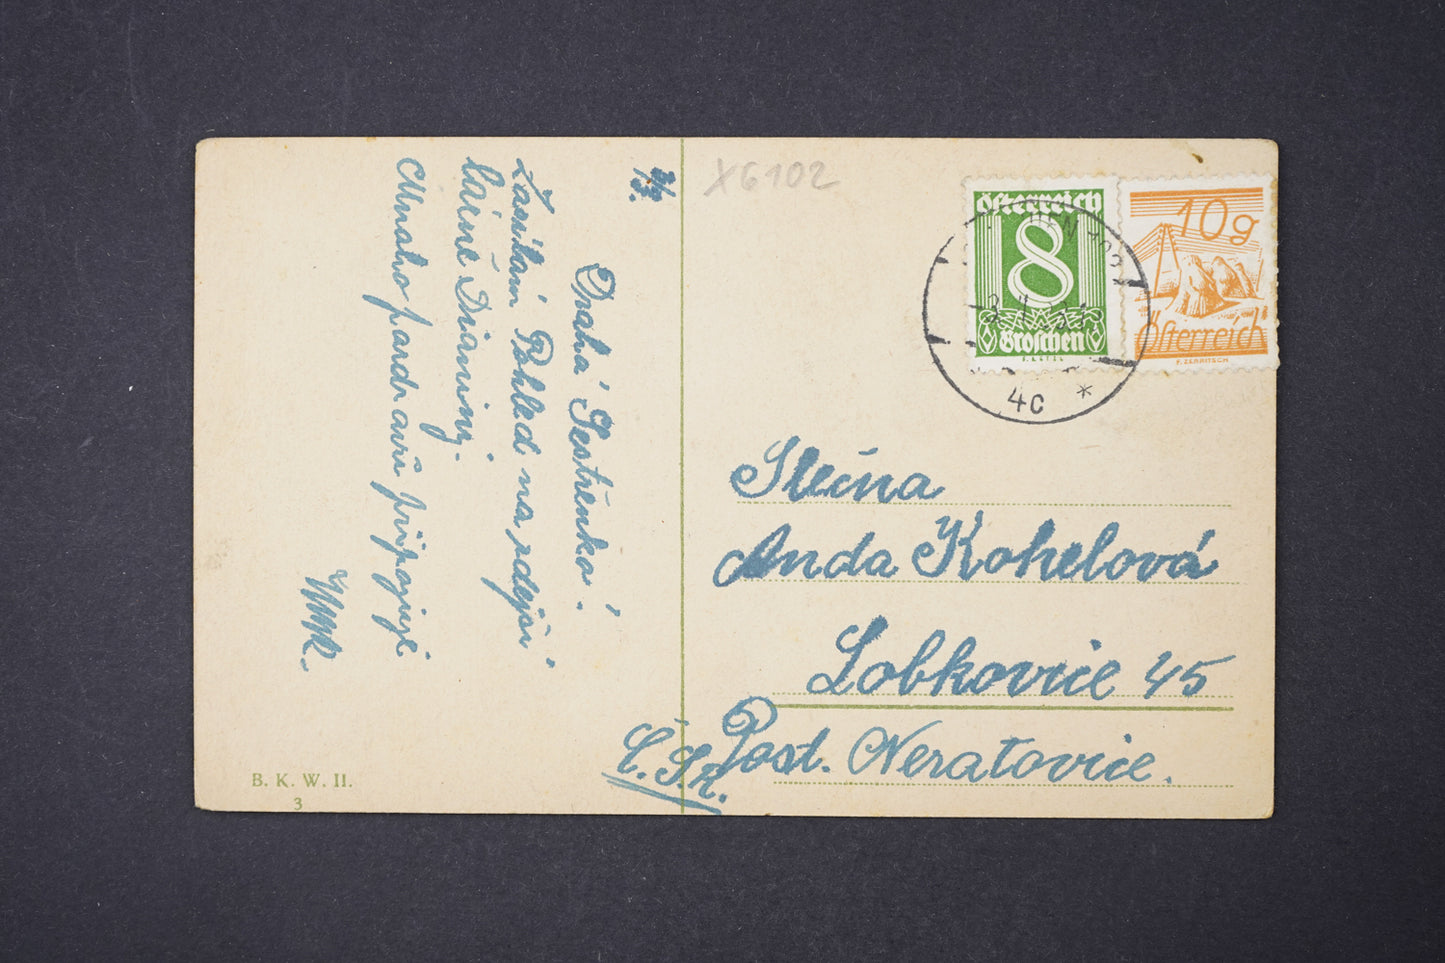 2/3.
Drahá Sestřenko!
Zasílám Pohled na zdejší
Mnoho pozdravů připojuje
X6102
Österreich
8
Groschen
10g
Österreich
F. ZERRITSCH
4c *
Slečna
Anda Kohelová
Lobkovice 45
Post. Neratovice.
Č.Sl.
B. K. W. II.
3